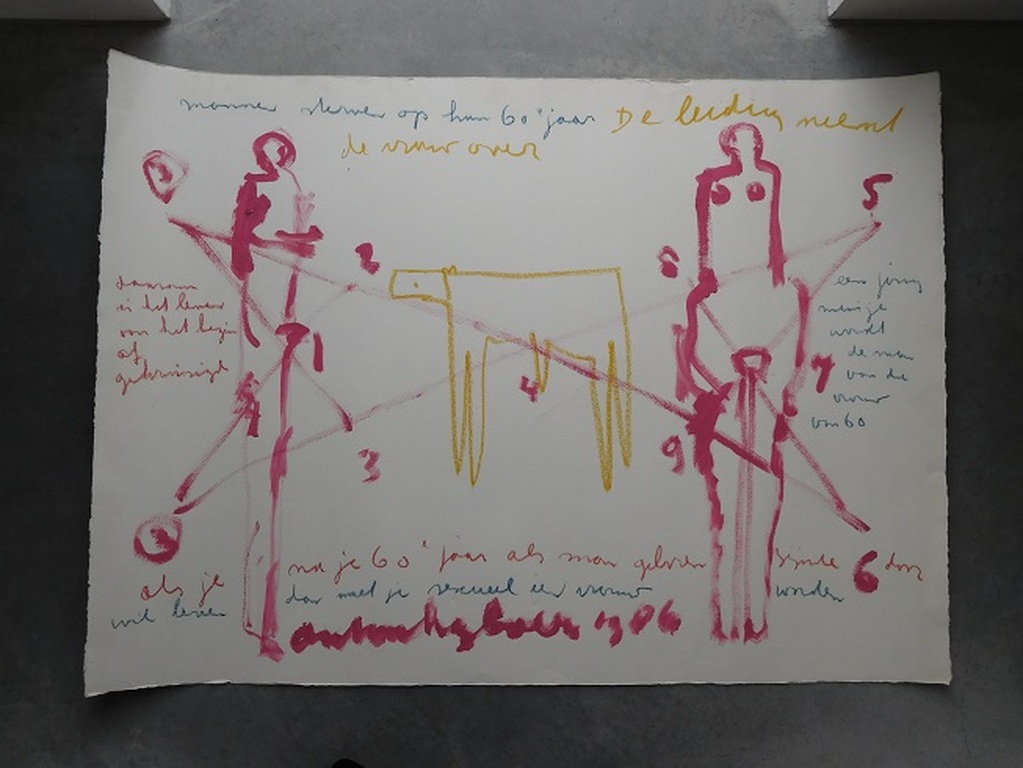 mannen sterven op hun 60e jaar De leiding neemt
de vrouw over
5
2
6
daarom
is het leven
van het begin
af
gekruisigd
een jong
meisje
wordt
de man
van de
vrouw
van 60
1
7
4
4
3
9
na je 60e jaar als man geboren zijnde door
6
als je
dan moet je sexueel een vrouw worden
wil leven
anton heyboer 1986